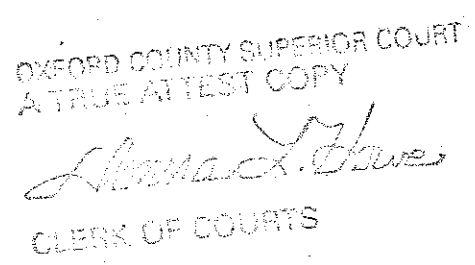 OXFORD COUNTY SUPERIOR COURT
A TRUE ATTEST COPY
Donna L. Howe
CLERK OF COURTS